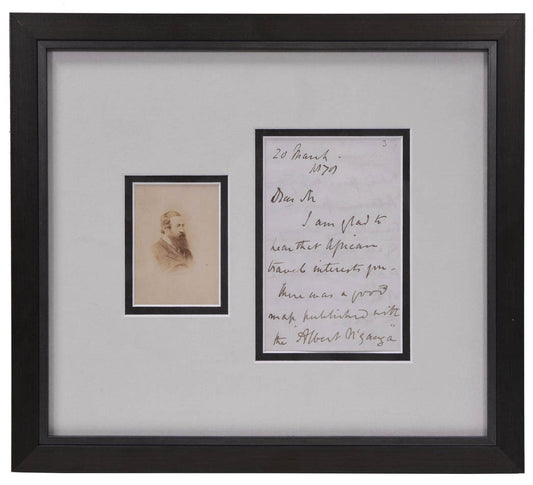 3
20 March.
1870
Dear Sir
I am glad to
hear that African
travels interests you.
There was a good
map published with
the "Albert N'yanza"